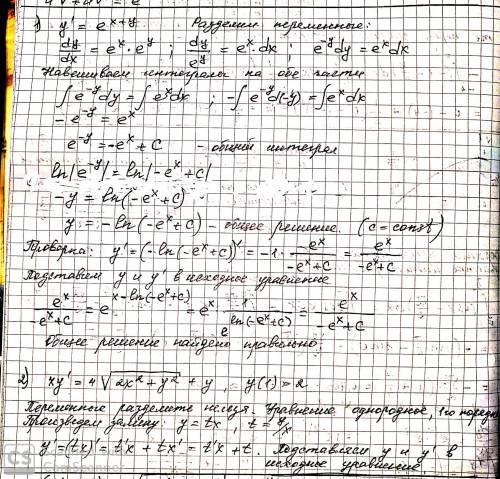 1) y' = e^{x+y} Разделим переменные:
dy/dx = e^x · e^y ; dy/e^y = e^x · dx ; e^{-y}dy = e^x dx
Навешиваем интегралы на обе части
∫e^{-y}dy = ∫e^x dx ; -∫e^{-y}d(-y) = ∫e^x dx
-e^{-y} = e^x
e^{-y} = -e^x + C - общий интеграл
ln|e^{-y}| = ln|-e^x + C|
-y = ln(-e^x + C)
y = -ln(-e^x + C) - общее решение. (C = const)
Проверка: y' = (-ln(-e^x + C))' = -1 · -e^x/(-e^x + C) = e^x/(-e^x + C)
Подставляем y и y' в исходное уравнение
e^x/(-e^x + C) = e^{x - ln(-e^x + C)} = e^x · 1/e^{ln(-e^x + C)} = e^x/(-e^x + C)
Общее решение найдено правильно.
2) xy' = 4√(2x² + y²) + y , y(1) = 2
Переменные разделить нельзя. Уравнение однородное, 1го порядка
Произведем замену: y = tx , t = y/x
y' = (tx)' = t'x + tx' = t'x + t. Подставляем y и y' в
исходное уравнение
CS CamScanner